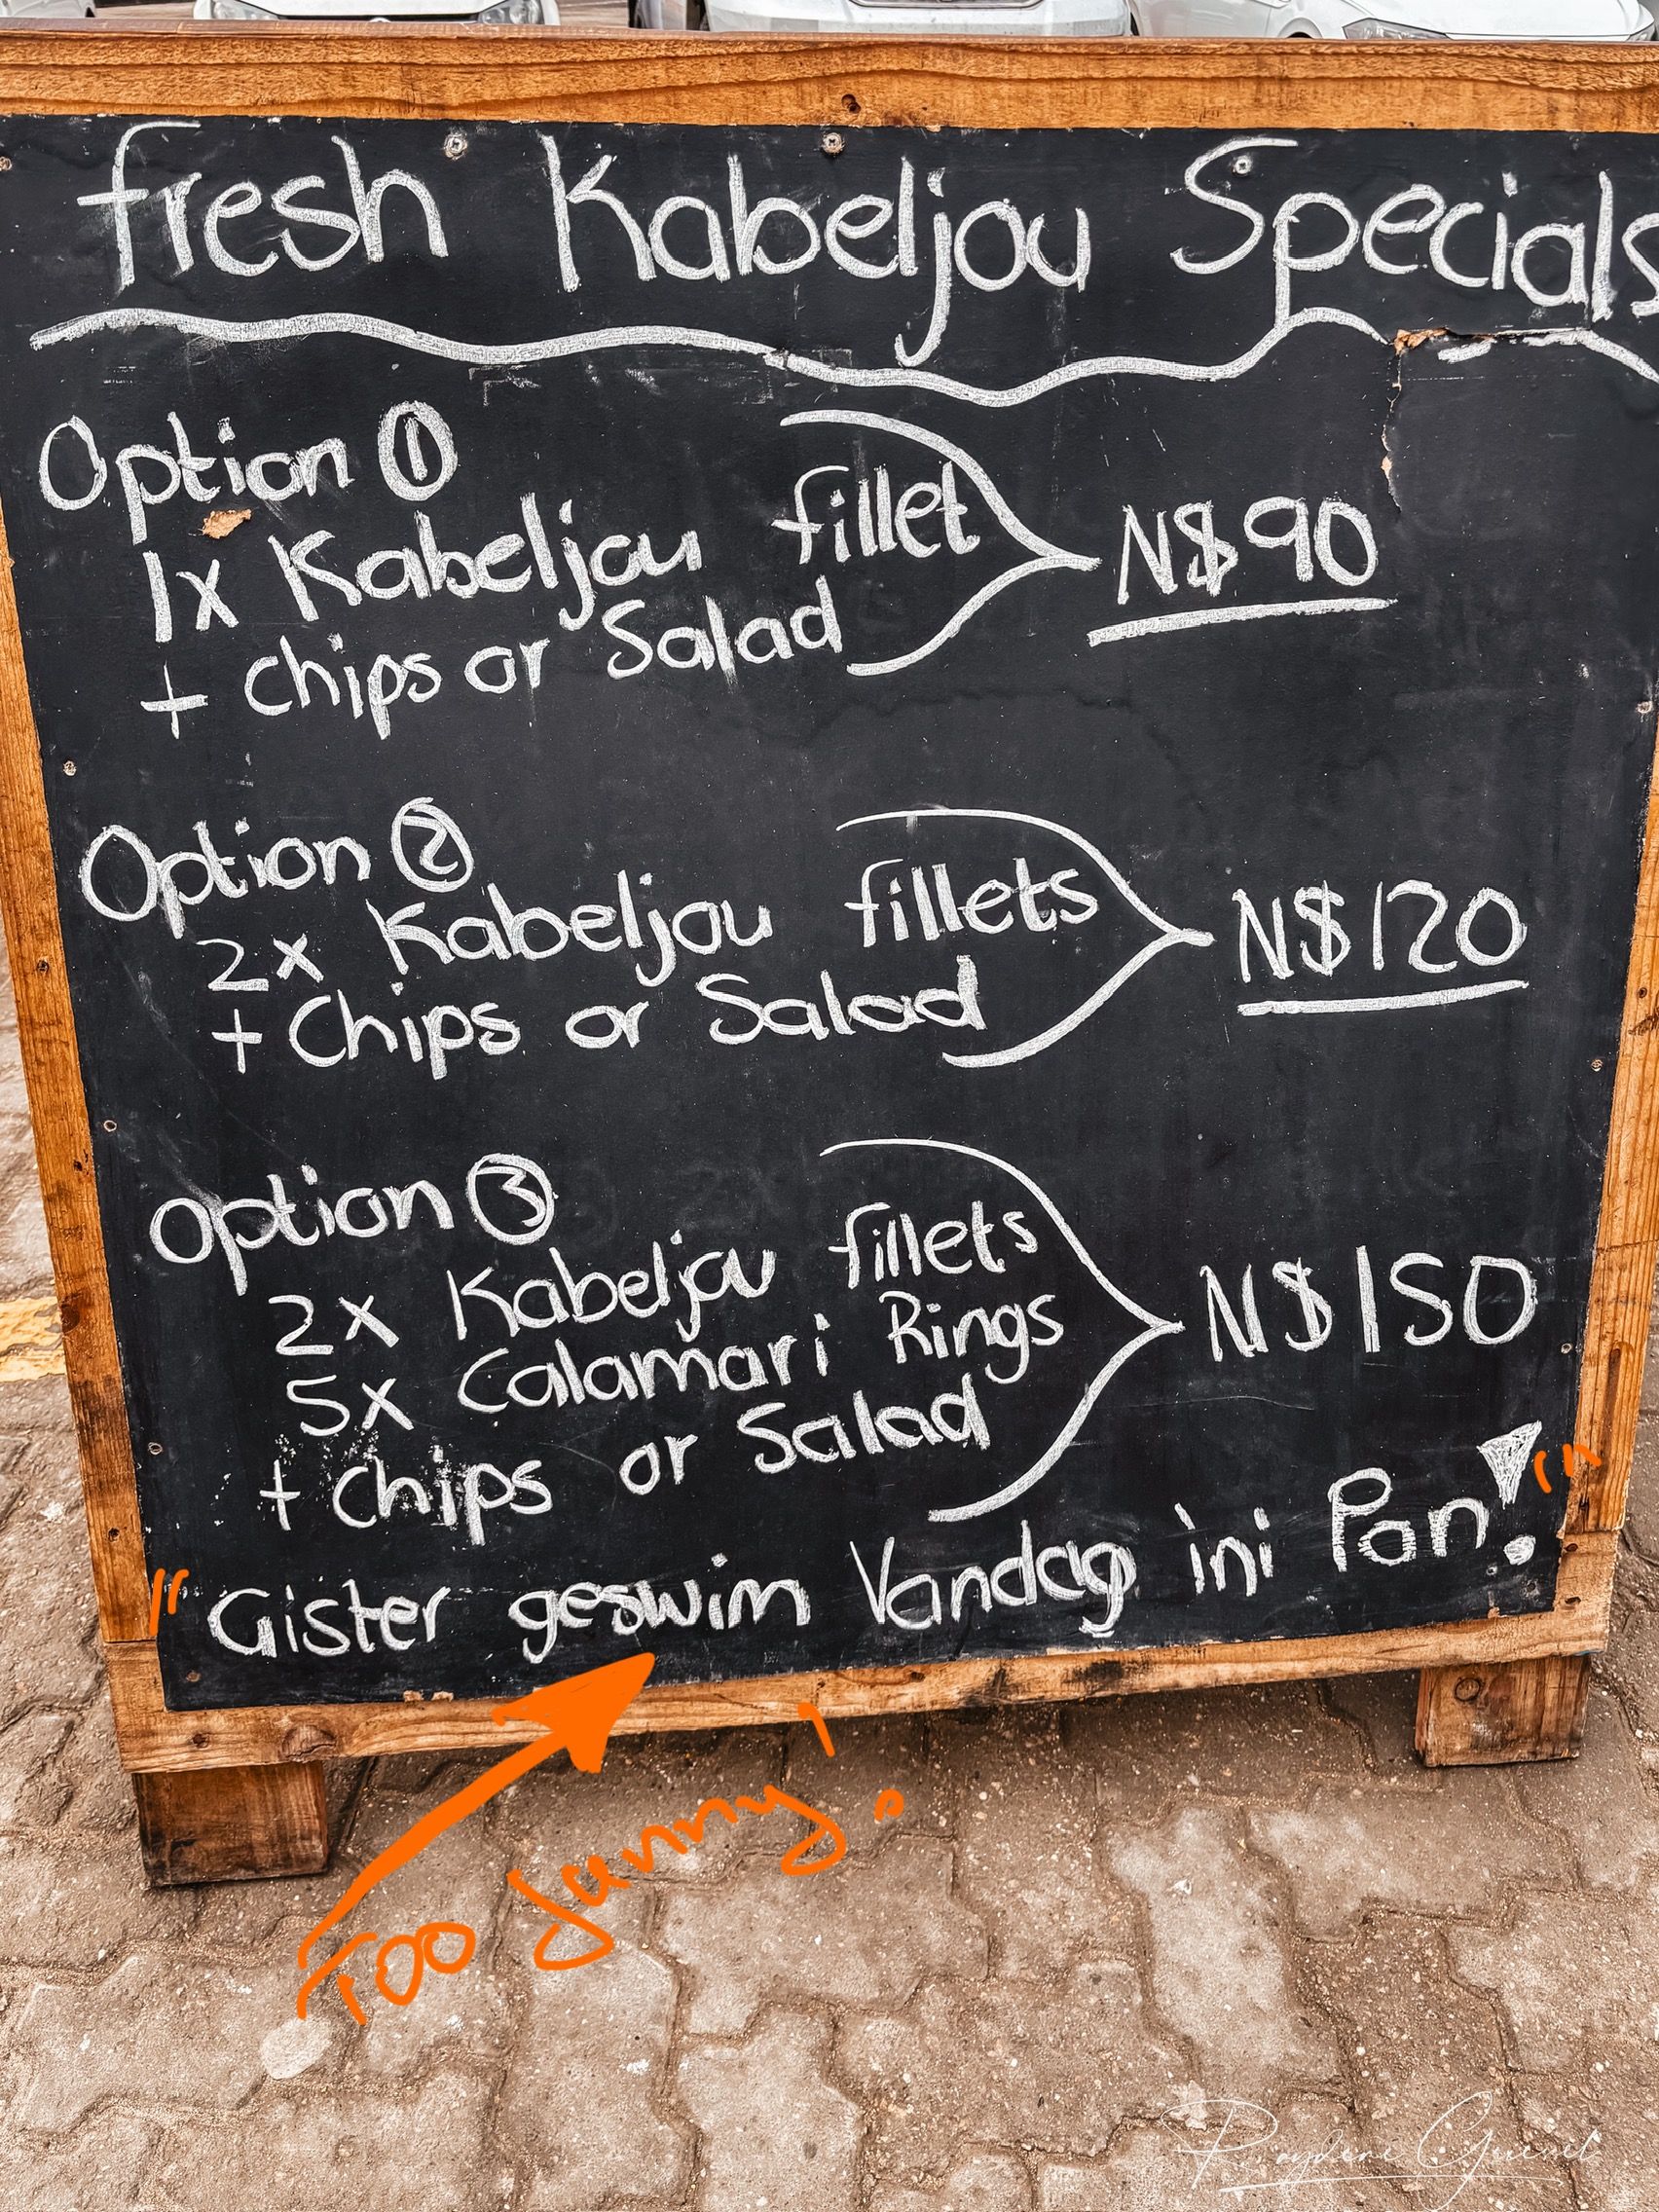 fresh Kabeljou Specials
Option ①
1x Kabeljou fillet
+ Chips or Salad
N$90
Option ②
2x Kabeljou fillets
+ Chips or Salad
N$120
Option ③
2x Kabeljou fillets
5x Calamari Rings
+ Chips or Salad
N$150
"Gister geswim Vandag ini Pan!"
Too funny!